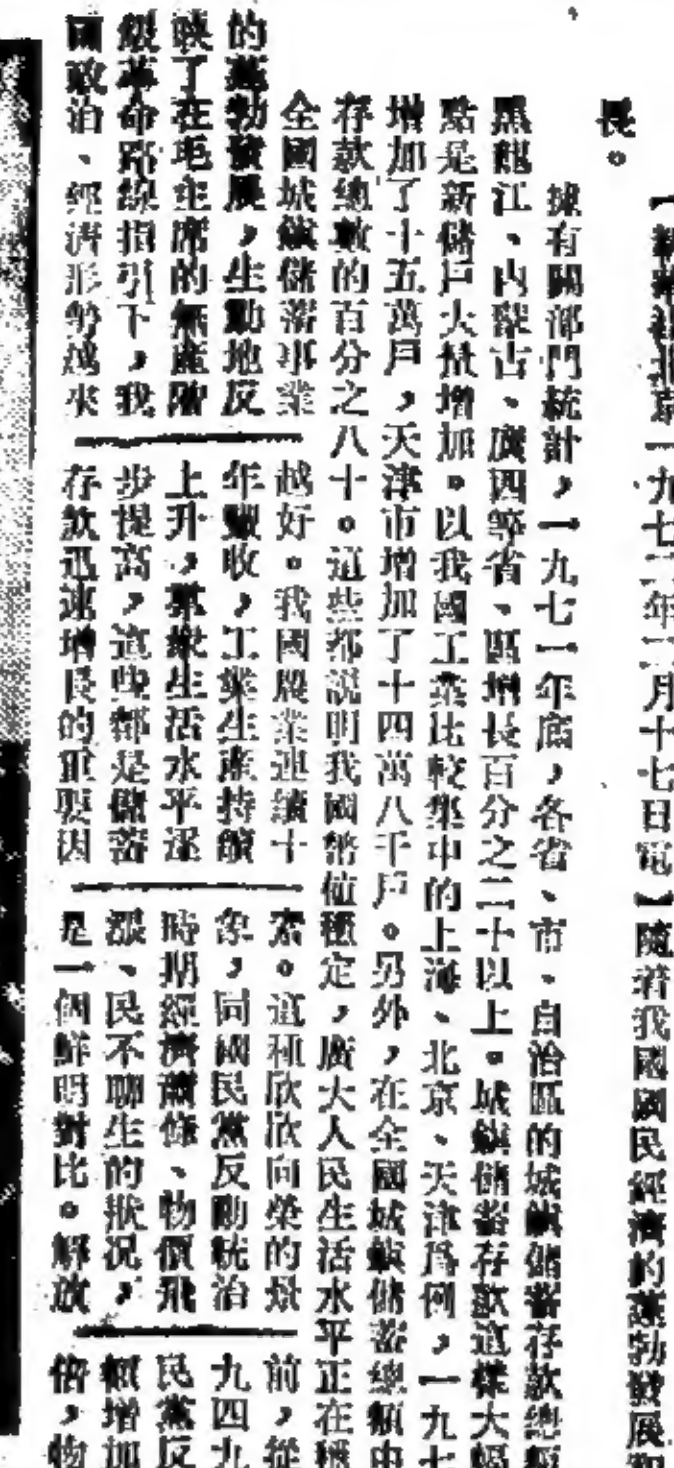 【新華社北京一九七二年二月十七日電】隨着我國國民經濟的蓬勃發展和
長。
據有關部門統計,一九七一年底,各省、市、自治區的城鎮儲蓄存款總額
黑龍江、內蒙古、廣西等省、區增長百分之二十以上。城鎮儲蓄存款這樣大幅
點是新儲戶大量增加。以我國工業比較集中的上海、北京、天津爲例,一九七
增加了十五萬戶,天津市增加了十四萬八千戶。另外,在全國城鎮儲蓄總額中
存款總數的百分之八十。這些都說明我國幣值穩定,廣大人民生活水平正在穩
全國城鎮儲蓄事業
的蓬勃發展,生動地反
映了在毛主席的無產階
級革命路線指引下,我
國政治、經濟形勢越來
越好。我國農業連續十
年豐收,工業生產持續
上升,羣衆生活水平逐
步提高,這些都是儲蓄
存款迅速增長的重要因
素。這種欣欣向榮的景
象,同國民黨反動統治
時期經濟蕭條、物價飛
漲、民不聊生的狀況,
是一個鮮明對比。解放
前,從
九四九
民黨反
額增加
倍,物